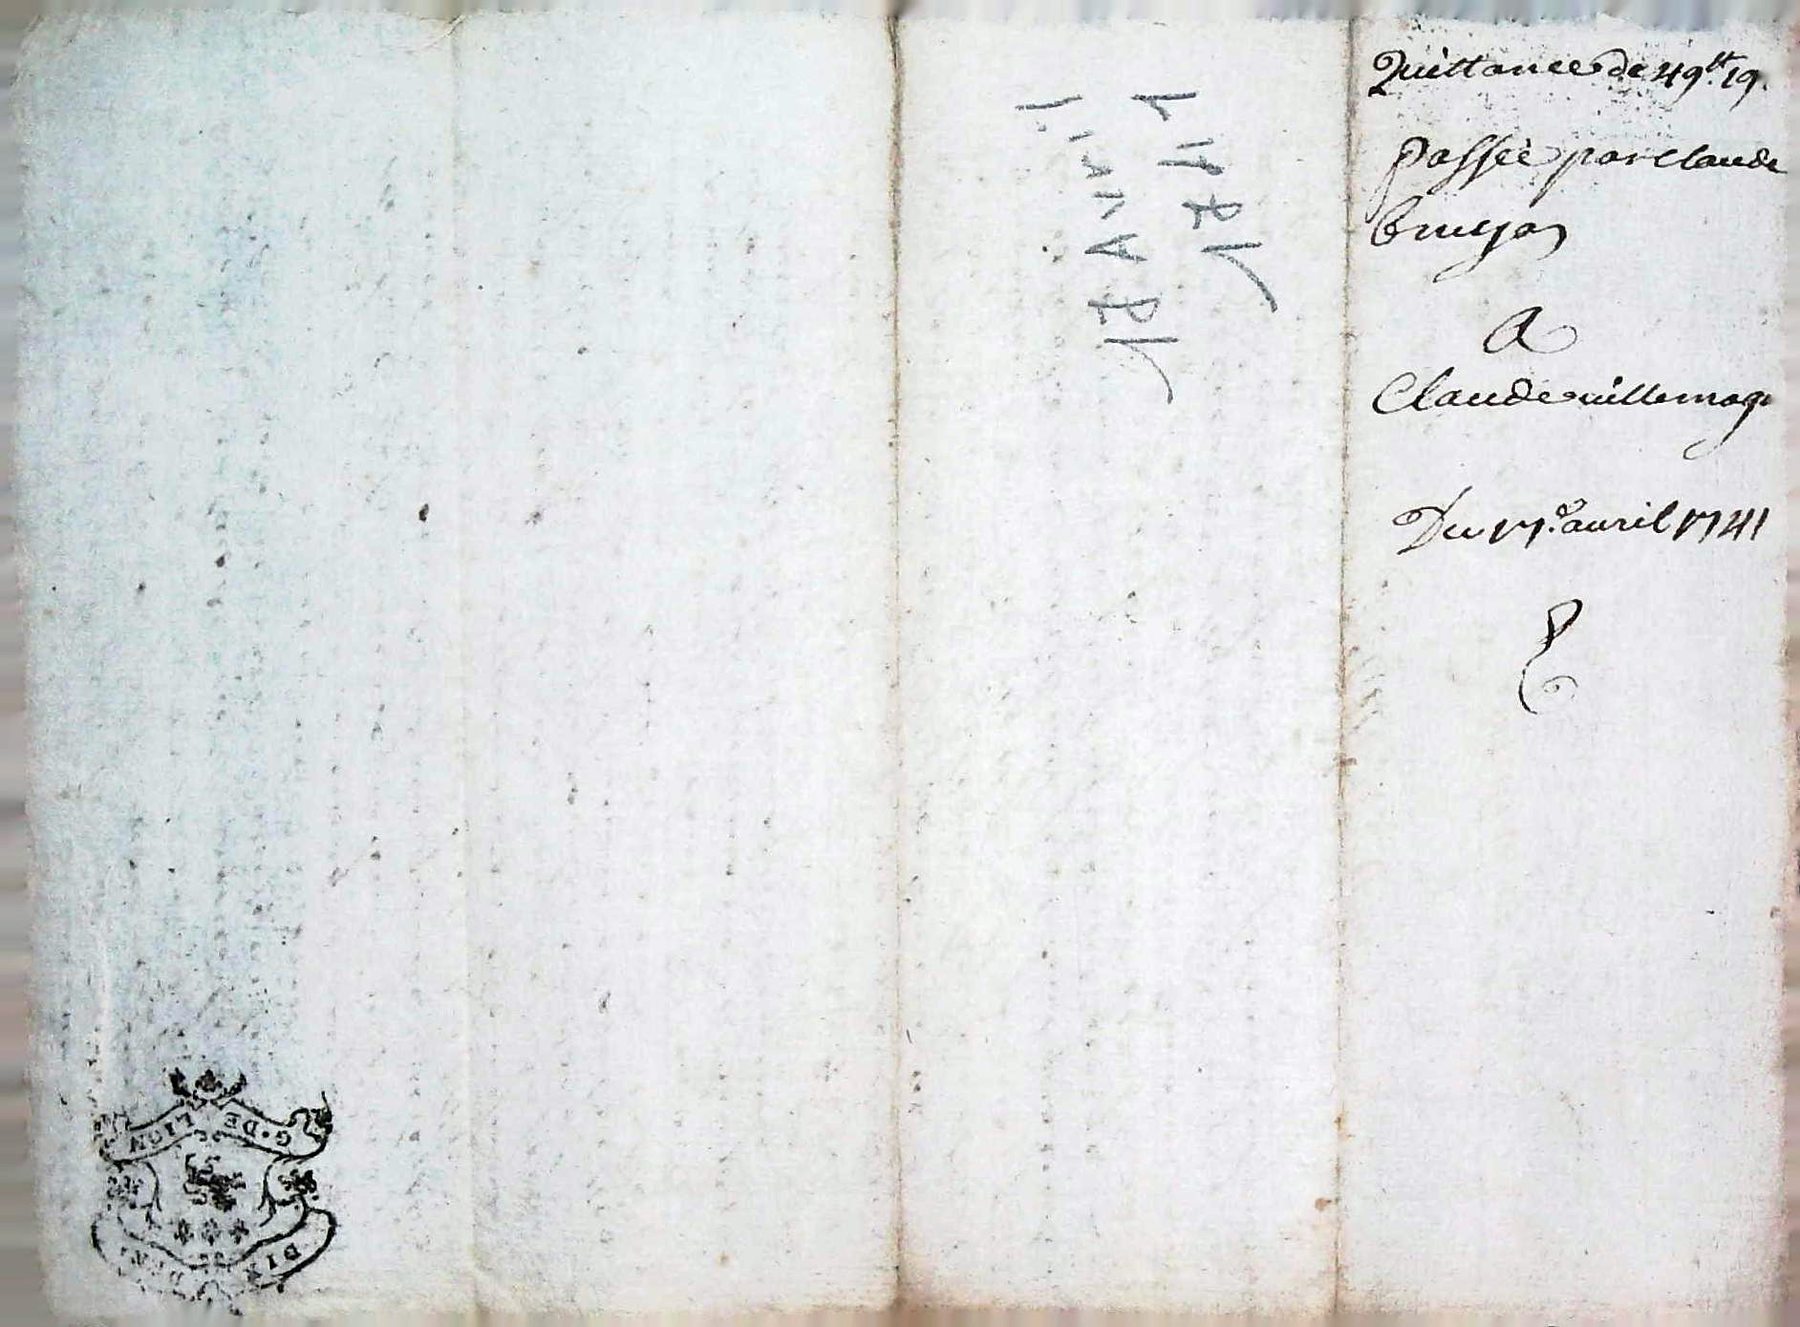 Quittance de 49ᵗᵗ 19.
passée par claude
bruyas
A
Claude uillemag
Du 17.e auril 1741
17 Avril
1741
G. DE LION
DIX DEN.